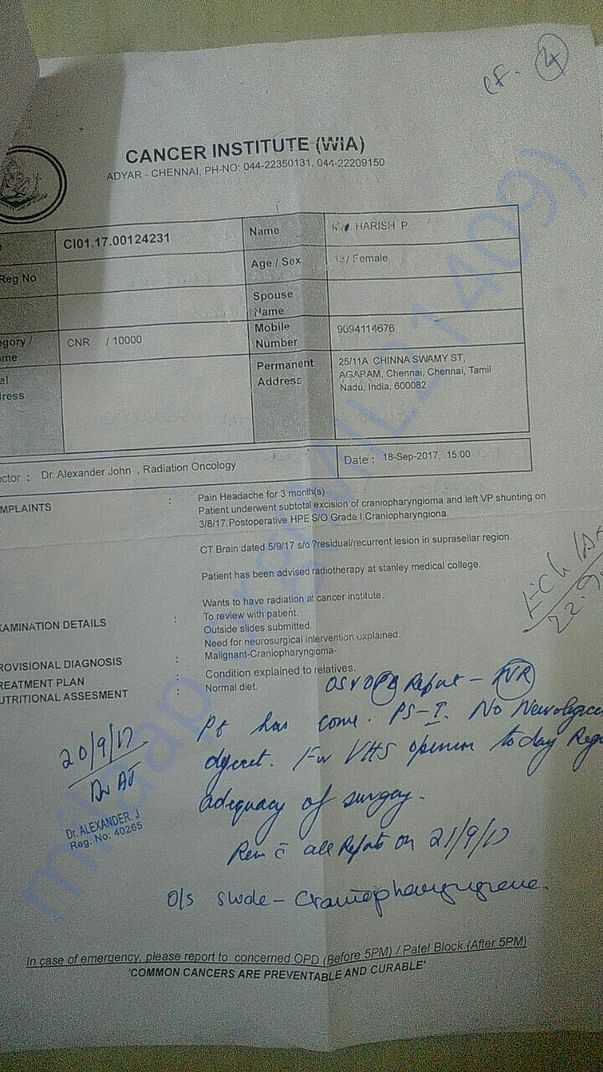 CF. 4
CANCER INSTITUTE (WIA)
ADYAR - CHENNAI, PH-NO: 044-22350131, 044-22209150
CI01.17.00124231
Name
HARISH P
Reg No
Age / Sex
/ Female
Spouse Name
egory /
me
CNR / 10000
Mobile Number
9094114676
ress
Permanent Address
25/11A CHINNA SWAMY ST,
AGARAM, Chennai, Chennai, Tamil
Nadu, India, 600082
ctor : Dr. Alexander John , Radiation Oncology
Date : 18-Sep-2017, 15:00
MPLAINTS : Pain Headache for 3 month(s)
Patient underwent subtotal excision of craniopharyngioma and left VP shunting on
3/8/17.Postoperative HPE S/O Grade I,Craniopharyngiona.
CT Brain dated 5/9/17 s/o ?residual/recurrent lesion in suprasellar region.
Patient has been advised radiotherapy at stanley medical college.
Wants to have radiation at cancer institute.
AMINATION DETAILS : To review with patient.
Outside slides submitted.
Need for neurosurgical intervention explained
ROVISIONAL DIAGNOSIS : Malignant-Craniopharyngioma-
REATMENT PLAN : Condition explained to relatives.
UTRITIONAL ASSESMENT : Normal diet.
22.9
Report -
20/9/17
Dr AJ
Pt has come. PS-I. No Neurologic
For VHS opinion today Reg
adequacy of surgery.
Dr. ALEXANDER. J
Reg. No: 40265
all Reports on 21/9/17
O/s slide - Craniopharyngioma.
In case of emergency, please report to concerned OPD (Before 5PM) / Patel Block (After 5PM)
'COMMON CANCERS ARE PREVENTABLE AND CURABLE'